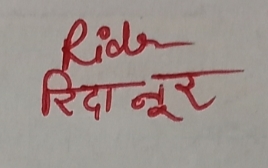 Rida
रिदा नूर